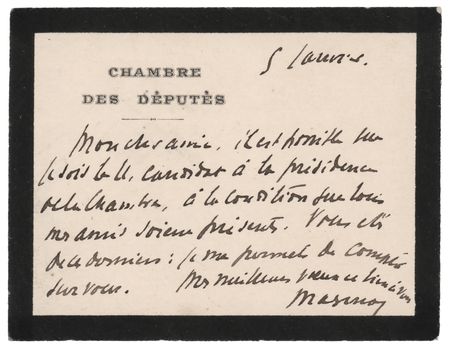 5 Janvier.
CHAMBRE
DES DÉPUTÉS
Mon cher ami, il est possible que
je sois le candidat à la présidence
de la Chambre, à la condition que tous
mes amis soient présents. Vous êtes
de ces derniers : je me permets de compter
sur vous. Mes meilleurs vœux et bien à vous